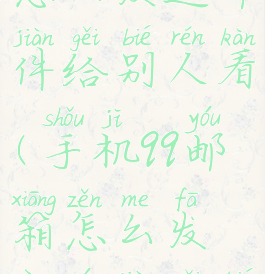 jiàn gěi bié rén kàn
件给别人看
shǒu jī yóu
(手机99邮
xiāng zěn me fā
箱怎么发